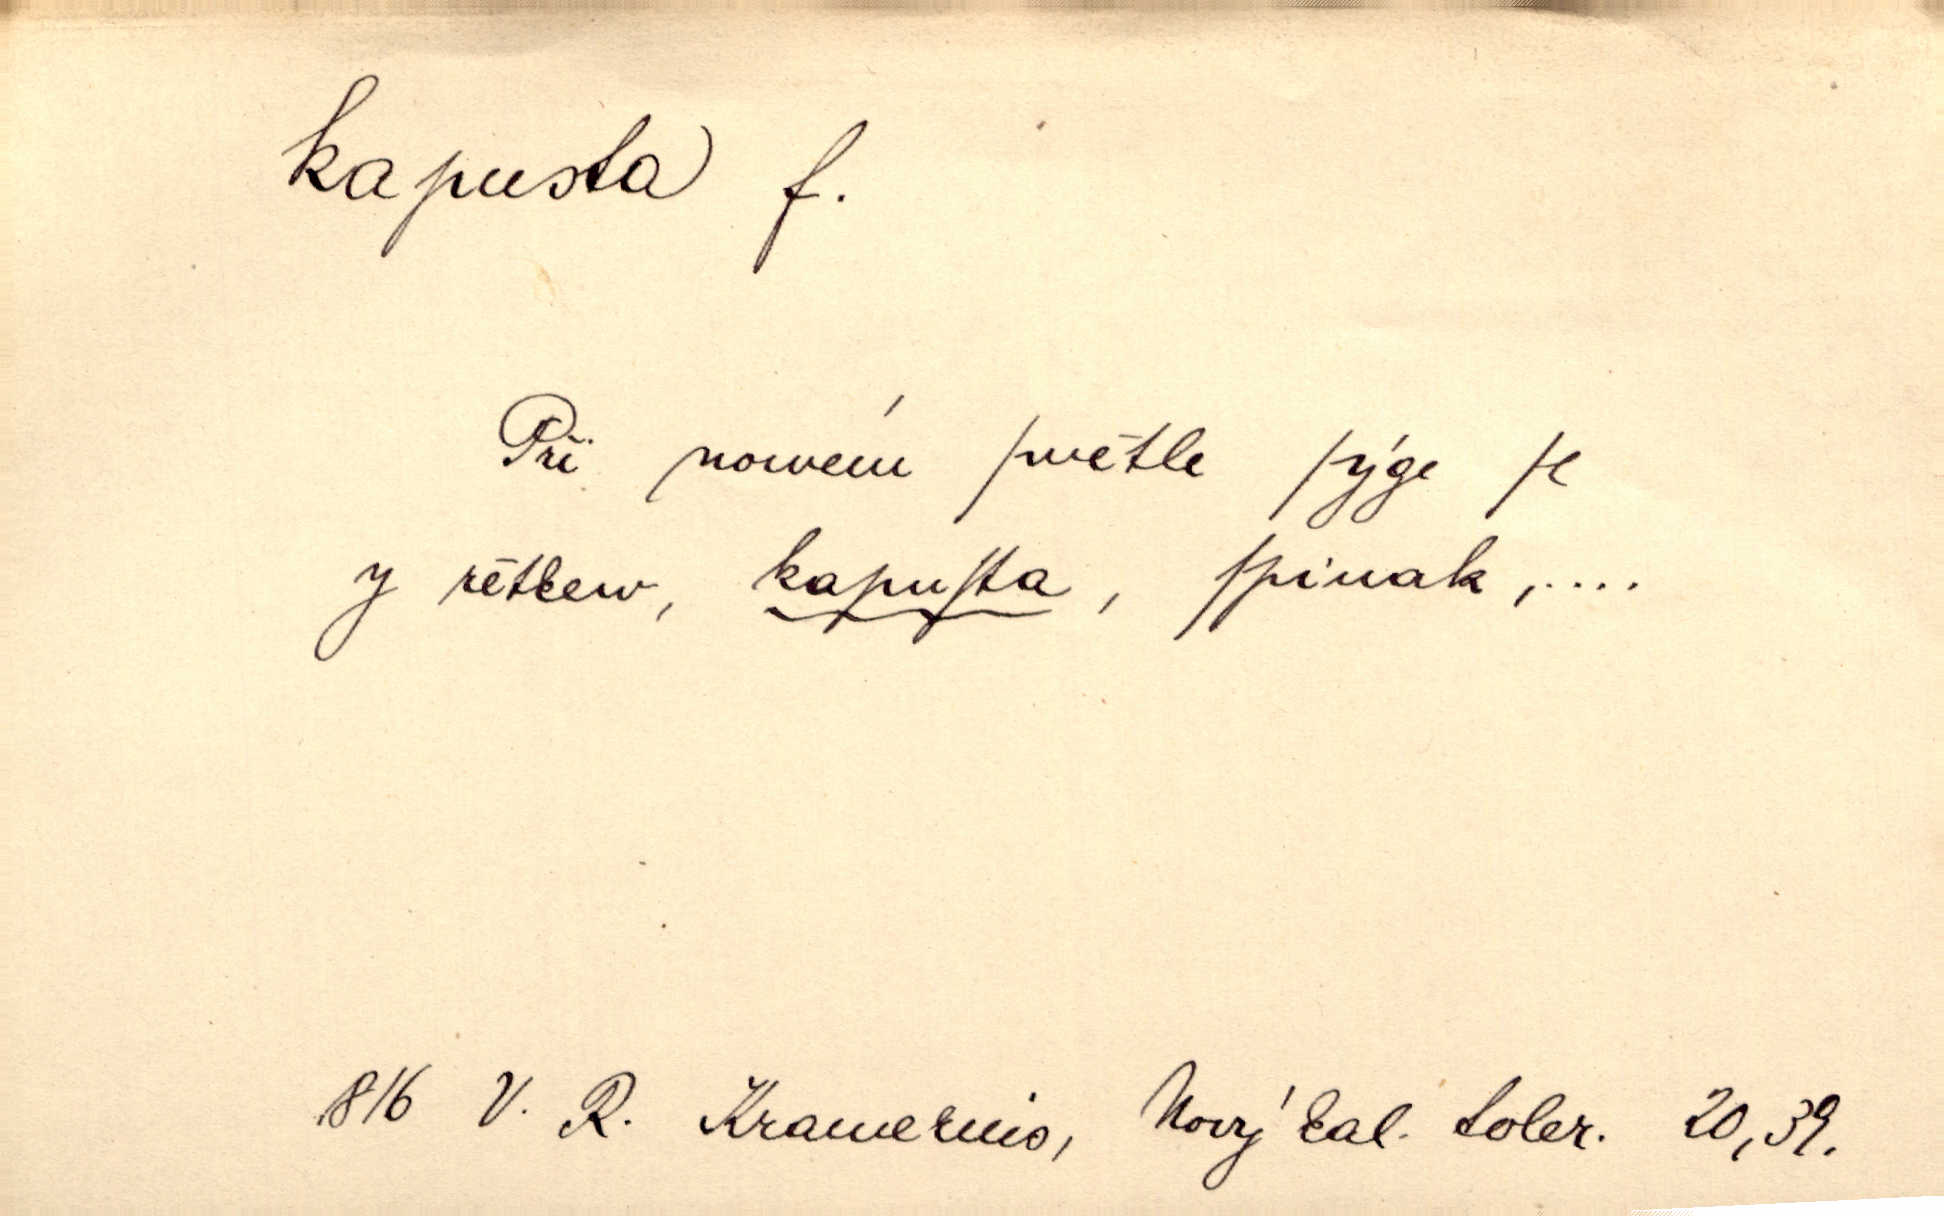 kapusta f.
Při nowém ſwětle ſýge ſe
y rětkew, kapuſta, ſpinak, ....
1816 V. R. Kramerius, Nový kal. toler. 20, 39.